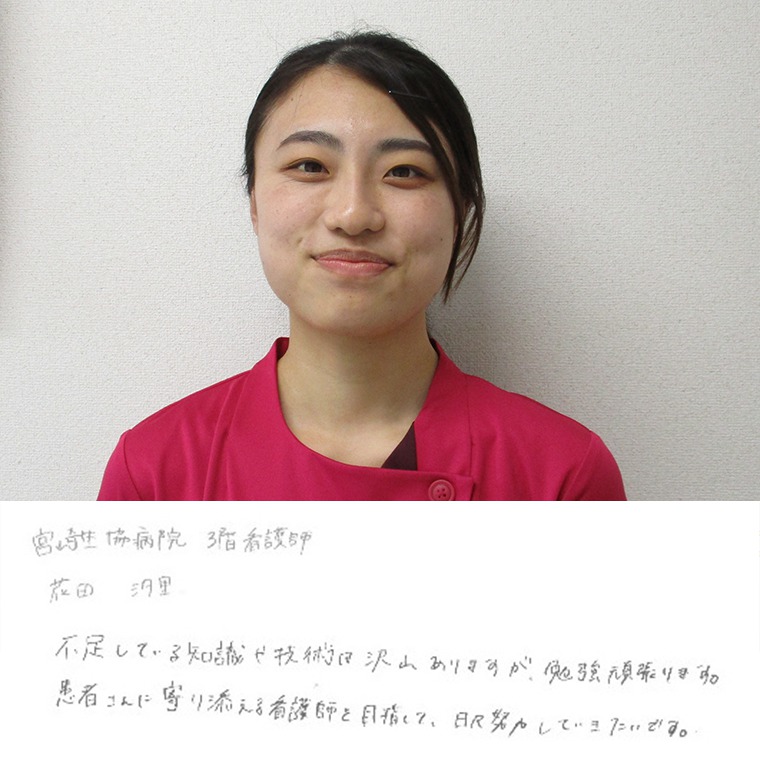 宮崎生協病院 3階看護師
花田 汐里
不足している知識や技術は沢山ありますが、勉強頑張ります。
患者さんに寄り添える看護師を目指して、日々努力していきたいです。